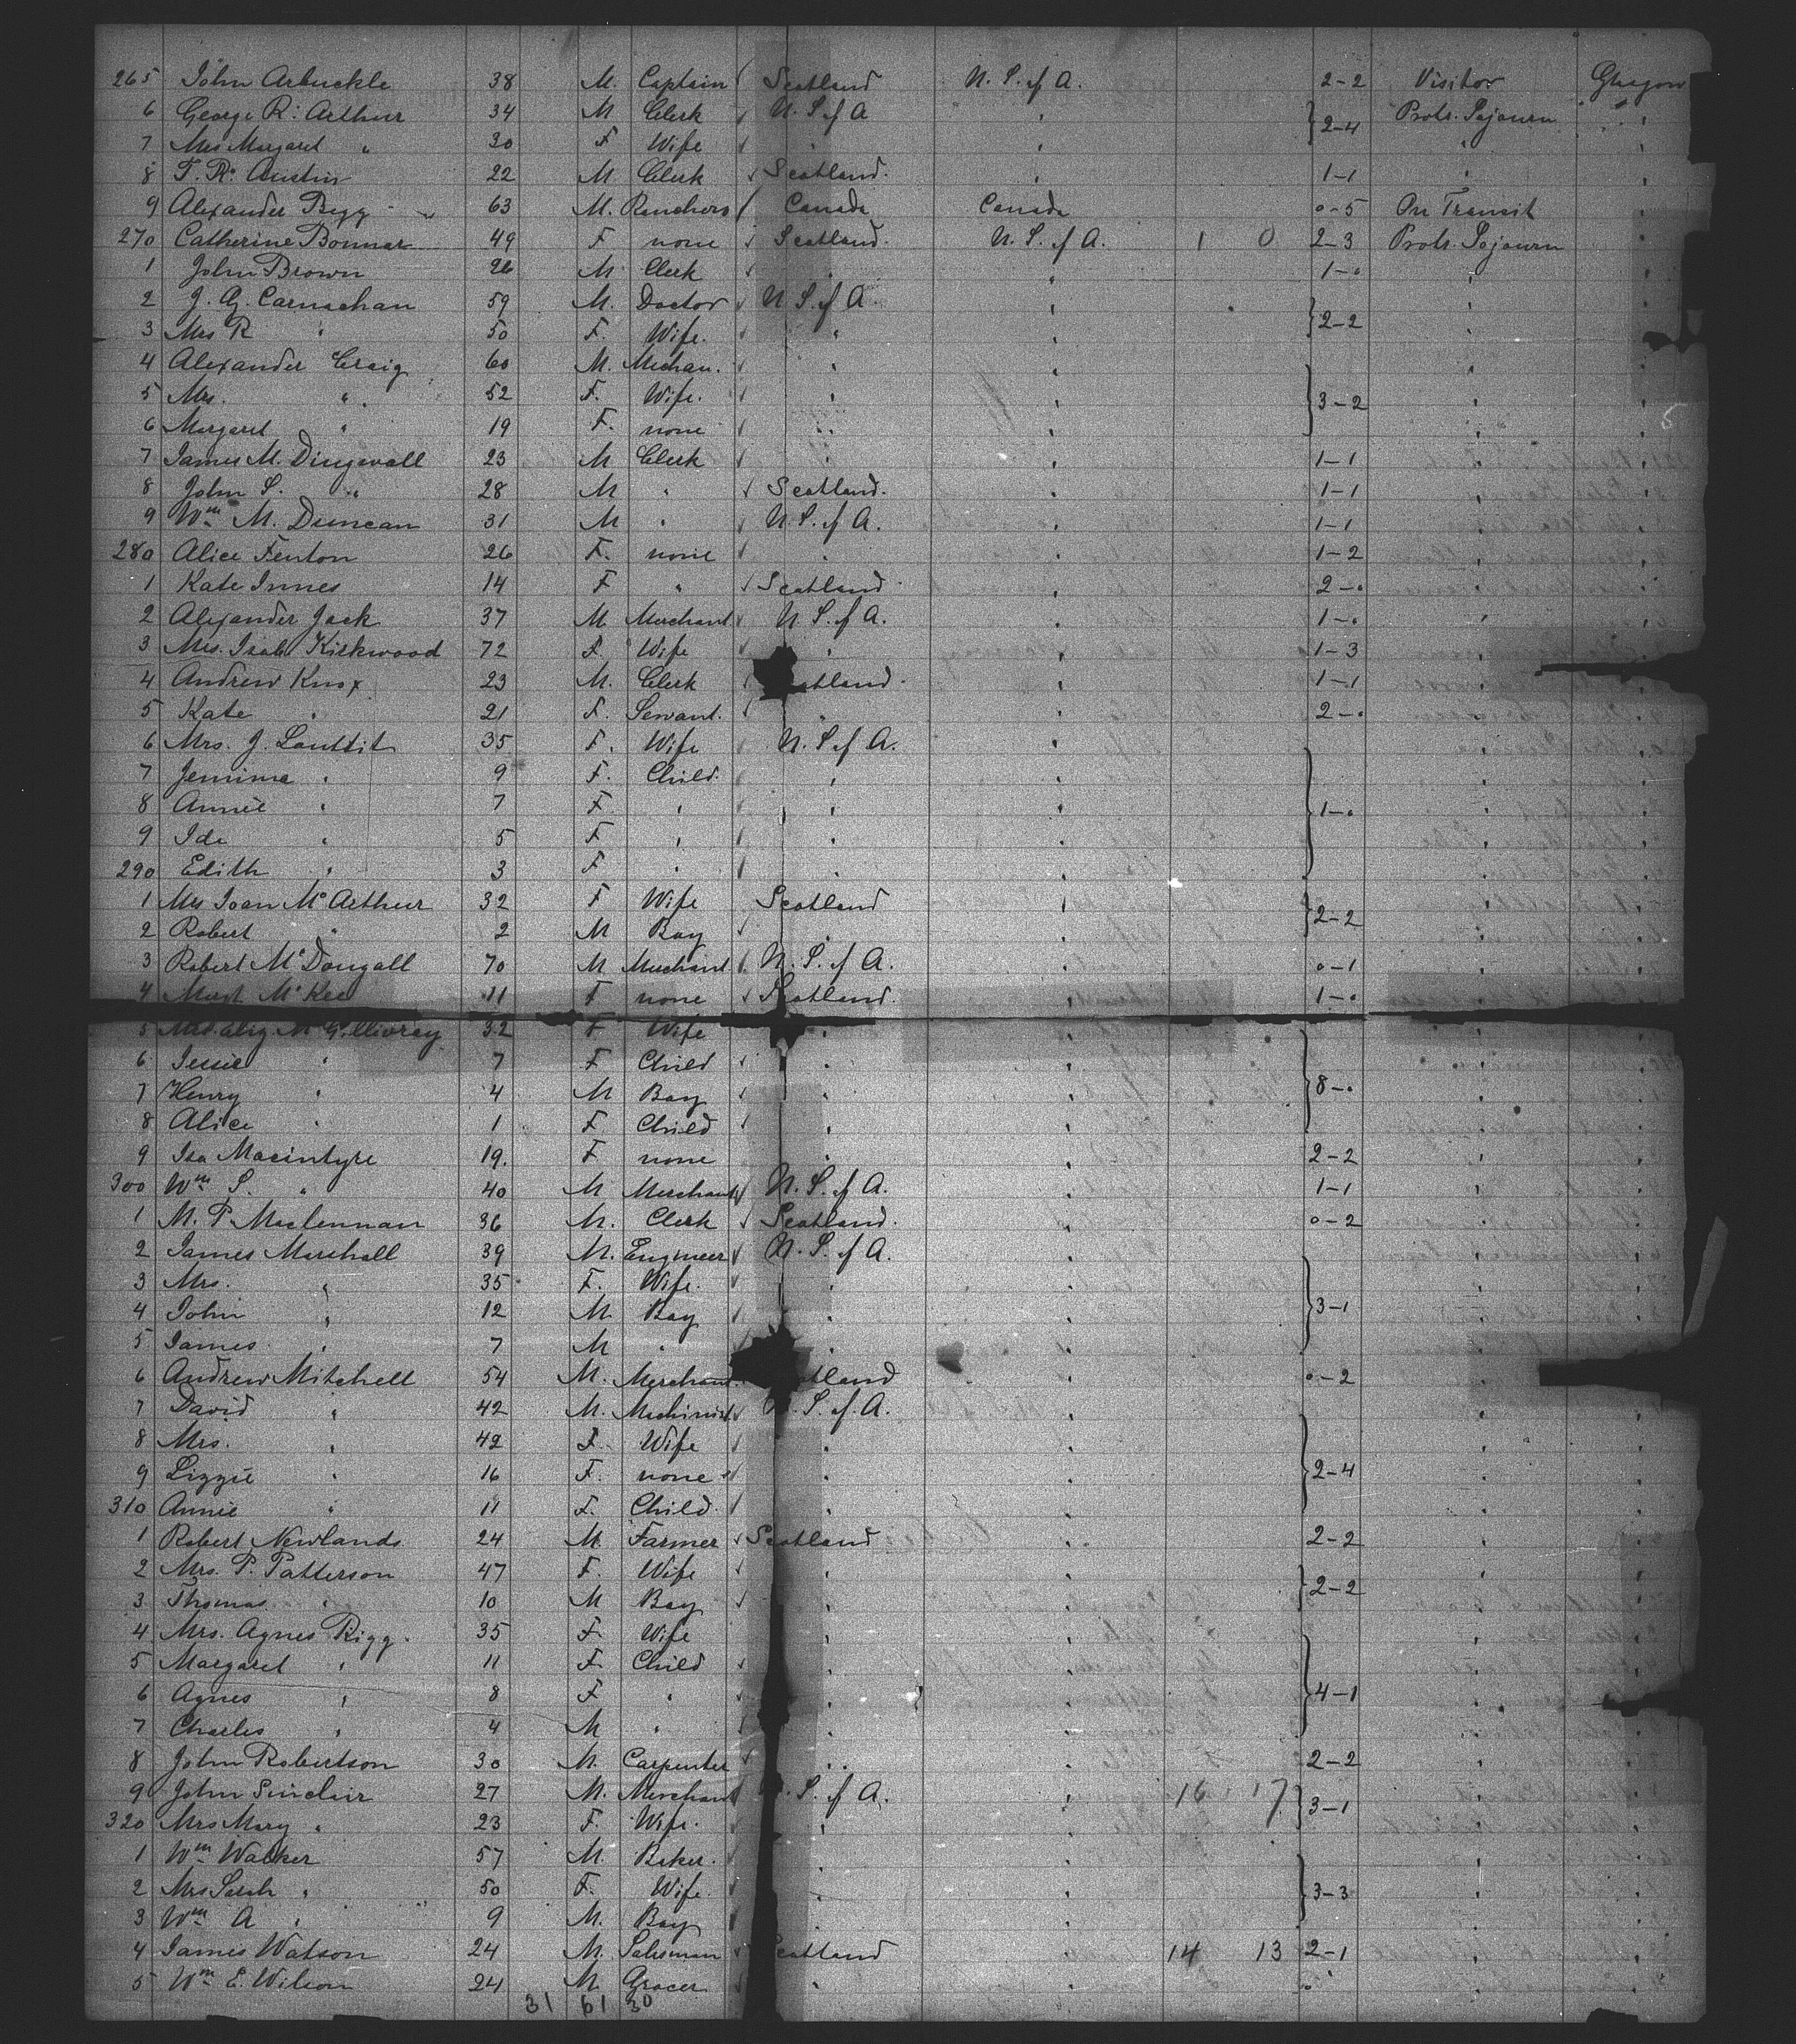 265 John Arbuckle 38 M. Captain Scotland U. S. of A. 2-2 Visitor Glasgow
6 George R. Arthur 34 M Clerk U. S. of A " 2-4 Protr. Sojourn "
7 Mrs Margaret " 30 F Wife " " " "
8 F. R. Austin 22 M Clerk Scotland. " 1-1 " "
9 Alexander Begg 63 M. Ranchero Canada Canada 0-5 On Transit "
270 Catherine Bonnar 49 F none Scotland. U. S. of A. 1 0 2-3 Protr. Sojourn "
1 John Brown 26 M Clerk " " 1-0 " "
2 J. G. Carnachan 59 M. Doctor U. S. of A. " 2-2 " "
3 Mrs R " 50 F. Wife. " " " "
4 Alexander Craig 60 M. Mechan. " " 3-2 " "
5 Mrs. " 52 F. Wife. " " " "
6 Margaret " 19 F. none " " " " 5
7 James M. Dingwall 23 M Clerk " " 1-1 " "
8 John S. " 28 M " Scotland. " 1-1 " "
9 Wm M. Duncan 31 M " U. S. of A. " 1-1 " "
280 Alice Fenton 26 F. none " " 1-2 " "
1 Kate Innes 14 F " Scotland " 2-0 " "
2 Alexander Jack 37 M Merchant U. S. of A. " 1-0 " "
3 Mrs. Isab. Kirkwood 72 F. Wife " " 1-3 " "
4 Andrew Knox 23 M. Clerk tland. " 1-1 " "
5 Kate " 21 F. Servant. " " 2-0 " "
6 Mrs. J. Louttit 35 F. Wife U. S. of A. " 1-0 " "
7 Jemima " 9 F. Child. " " " "
8 Annie " 7 F " " " " "
9 Ida " 5 F " " " " "
290 Edith " 3 F " " " " "
1 Mrs Joan McArthur 32 F Wife Scotland " 2-2 " "
2 Robert " 2 M Boy " " " "
3 Robert McDougall 70 M Merchant U. S. of A. " 0-1 " "
4 Margt McKee 11 F none Scotland. " 1-0 " "
5 Mrs. Eliz McGillivray 32 F Wife " " 8-0 " "
6 Jessie " 7 F Child " " " "
7 Henry " 4 M Boy " " " "
8 Alice " 1 F Child " " " "
9 Isa Macintyre 19. F none " " 2-2 " "
300 Wm S. " 40 M Merchant U. S. of A. " 1-1 " "
1 M. P. Maclennan 36 M. Clerk Scotland. " 0-2 " "
2 James Marshall 39 M. Engineer U. S. of A. " 3-1 " "
3 Mrs. " 35 F. Wife. " " " "
4 John " 12 M. Boy " " " "
5 James " 7 M " " " " "
6 Andrew Mitchell 54 M. Merchant tland " 0-2 " "
7 David " 42 M. Machinist . S. of A. " 2-4 " "
8 Mrs. " 42 F. Wife " " " "
9 Lizzie " 16 F. none " " " "
310 Annie " 11 F. Child. " " " "
1 Robert Newlands 24 M. Farmer Scotland " 2-2 " "
2 Mrs. P. Patterson 47 F. Wife " " 2-2 " "
3 Thomas " 10 M Boy " " " "
4 Mrs. Agnes Rigg. 35 F Wife " " 4-1 " "
5 Margaret " 11 F Child " " " "
6 Agnes " 8 F " " " " "
7 Charles " 4 M " " " " "
8 John Robertson 30 M. Carpenter " " 2-2 " "
9 John Sinclair 27 M. Merchant . S. of A. " 16 17 3-1 " "
320 Mrs Mary " 23 F. Wife. " " " "
1 Wm Walker 57 M. Baker. " " 3-3 " "
2 Mrs Sarah " 50 F. Wife. " " " "
3 Wm A " 9 M. Boy " " " "
4 James Watson 24 M. Salesman cotland " 14 13 2-1 " "
5 Wm E. Wilson 24 M. Grocer " " " "
31 61 30